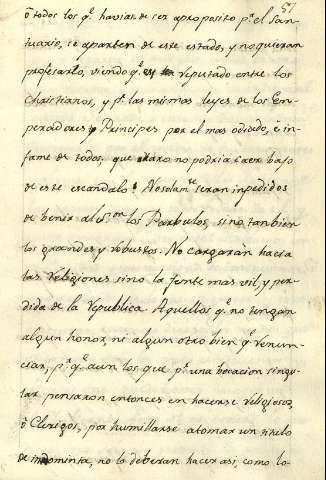 57
ô todos los q.e havian de ser aproposito p.a el San-
tuario, se aparten de este estado, y no quieran
profesarlo, viendo q.e es reputado entre los
Christianos, y p.r las mismas leyes de los Em-
peradores y Principes por el mas odiado, è in-
fame de todos. que no podria caer bajo
de este escandalo? Nosolam.te seran inpedidos
de benir al los Parbulos, sino tanbien
los grandes y robustos. No cargaràn hacia
las religiones sino la Jente mas vil, y per-
dida de la republica. Aquellos q.e no tengan
algun honor, ni algun otro bien q.e renun-
ciar, p.r q.e aun los que p.r una bocacion singu-
lar pensaron entonces en hacerse religiosos,
ô Clerigos, por humillarse atomar un titulo
de, no lo deberan hacer asi, como lo-